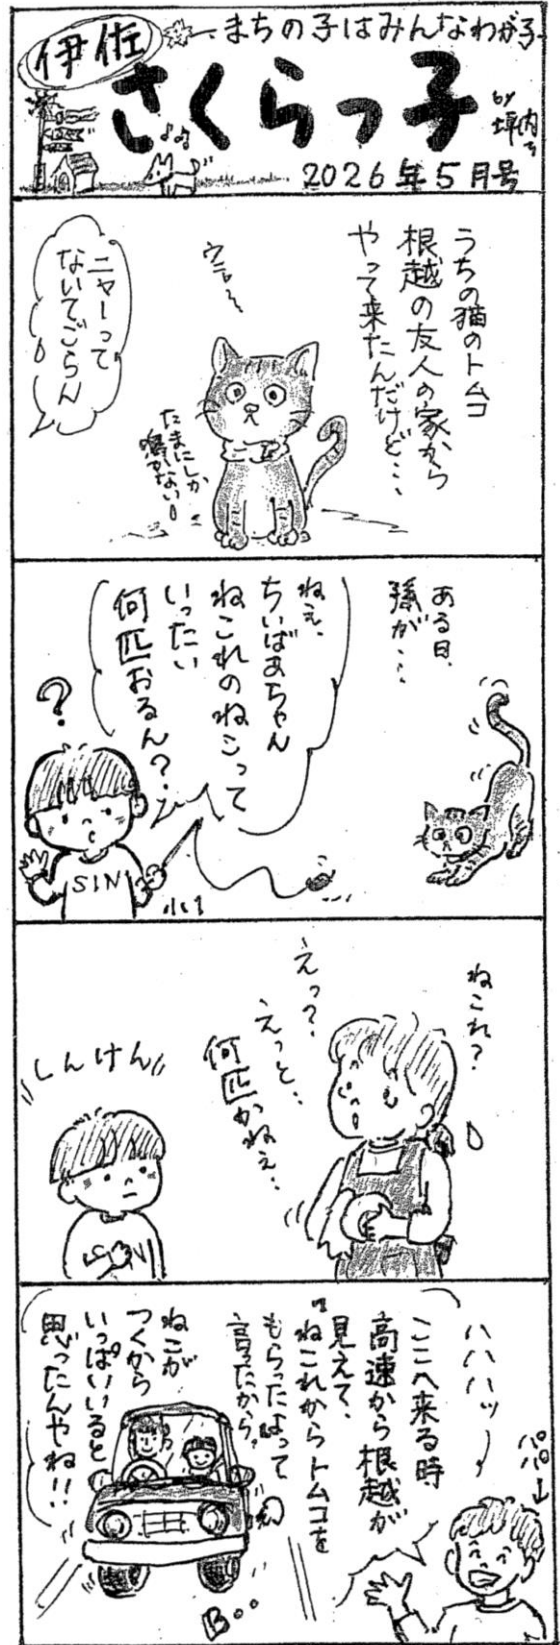 伊佐
まちの子はみんなわが子
さくらっ子
by
坪内
2026年5月号
うちの猫のトムコ
根越の友人の家から
やって来たんだけど…
ウニ〜
ニャーって
ないてごらん
たまにしか
鳴かない
ある日、
孫が…
ねえ、
ちいばあちゃん
ねこれのねこって
いったい
何匹おるん?
?
SIN
小1
ねこれ?
えっ?
えっと…
何匹かねえ…
しんけん
ハハハッ
パパ
ここへ来る時
高速から根越が
見えて、
"ねこれからトムコを
もらったよって
言ったから、
ねこが
つくから
いっぱいいると
思ったんやね!!
B